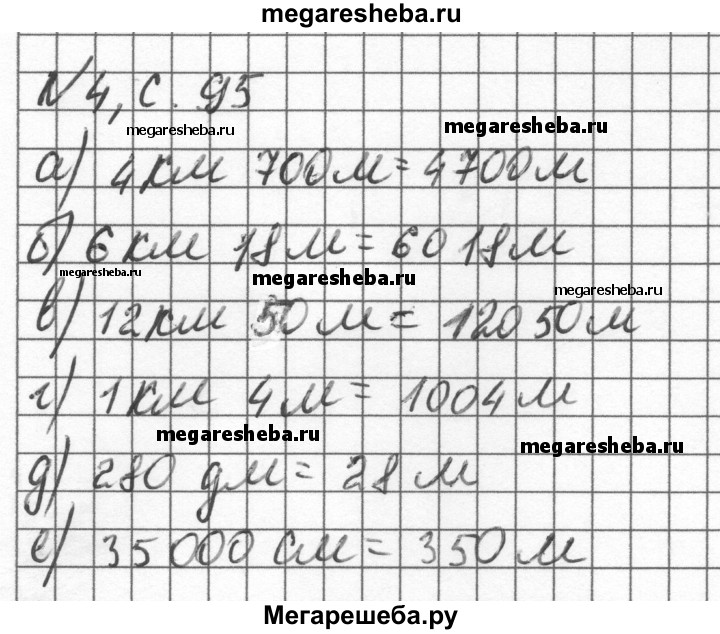 megaresheba.ru
№4, с. 95
megaresheba.ru
megaresheba.ru
а) 4км 700м=4700м
б) 6 км 18м=6018м
megaresheba.ru
megaresheba.ru
megaresheba.ru
в) 12км 50м=12050м
г) 1км 4м=1004м
megaresheba.ru
megaresheba.ru
д) 280 дм=28 м
е) 35000 см=350м
Мегарешеба.ру